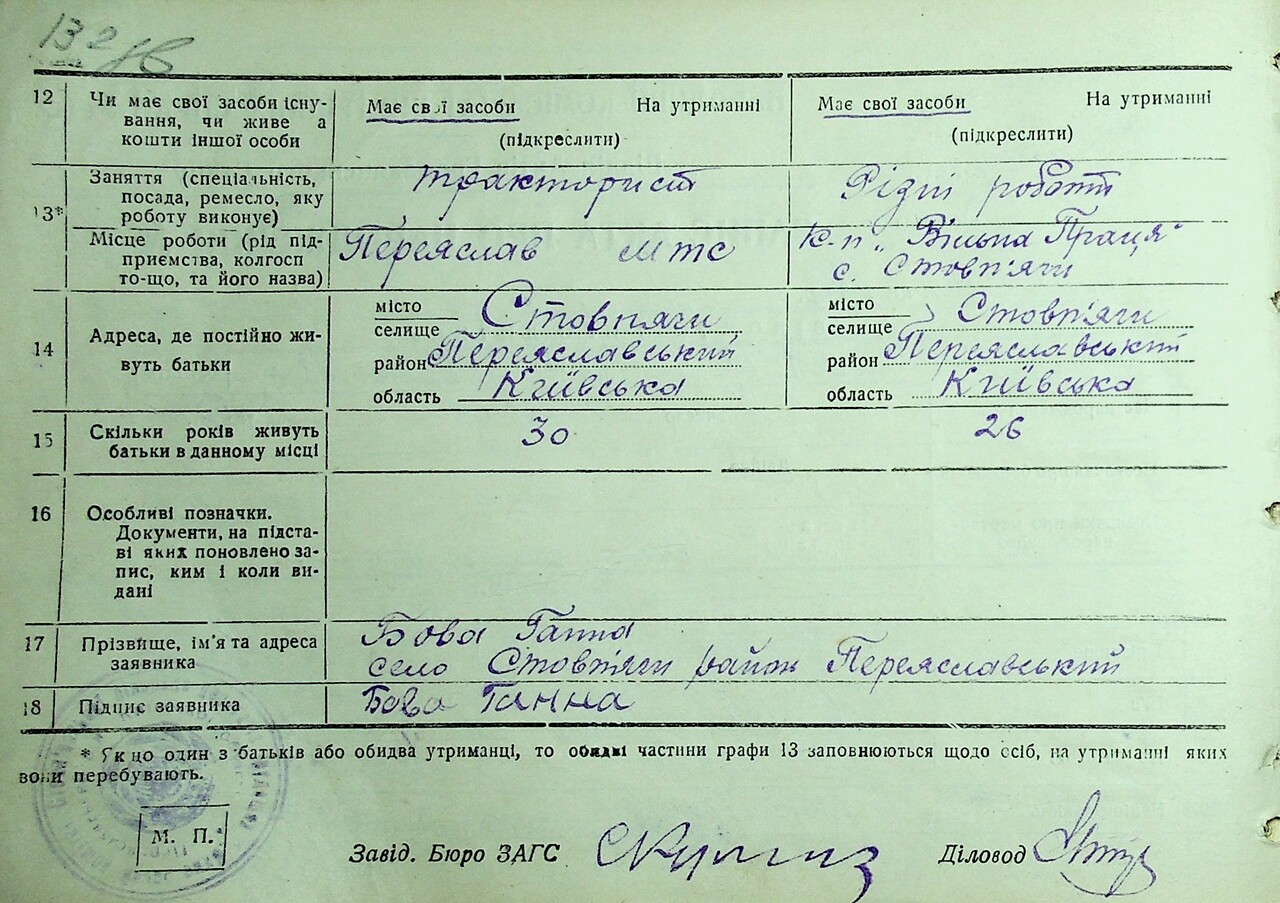 132
12 Чи має свої засоби існу- Має свої засоби На утриманні Має свої засоби На утриманні
вання, чи живе а
кошти іншої особи (підкреслити) (підкреслити)
13* Заняття (спеціальність, тракторист Різні роботи
посада, ремесло, яку
роботу виконує)
Місце роботи (рід під- Переяслав мтс К-п „Вільна Праця"
приємства, колгосп с. Стовп'яги
то-що, та його назва)
14 Адреса, де постійно жи- місто місто
вуть батьки селище Стовпяги селище Стовп'яги
район Переяславський район Переяславський
область Київська область Київська
15 Скільки років живуть 30 26
батьки в данному місці
16 Особливі позначки.
Документи, на підста-
ві яких поновлено за-
пис, ким і коли ви-
дані
17 Прізвище, ім'я та адреса Бова Ганна
заявника село Стовп'яги район Переяславський
18 Підпис заявника Бова Ганна
* Якцо один з батьків або обидва утриманці, то обидві частини графи 13 заповнюються щодо осіб, на утриманні яких
вони перебувають.
М. П.
Завід. Бюро ЗАГС Діловод